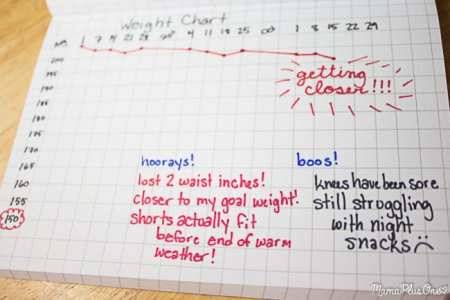 Weight Chart
1 7 14 21 28 4 11 18 25 1 8 15 22 29
200
195
190
185
180
175
170
165
160
155
150
getting
closer!!!
hoorays!
lost 2 waist inches!
closer to my goal weight!
shorts actually fit
before end of warm
weather!
boos!
knees have been sore
still struggling
with night
snacks
MamaPlusOne